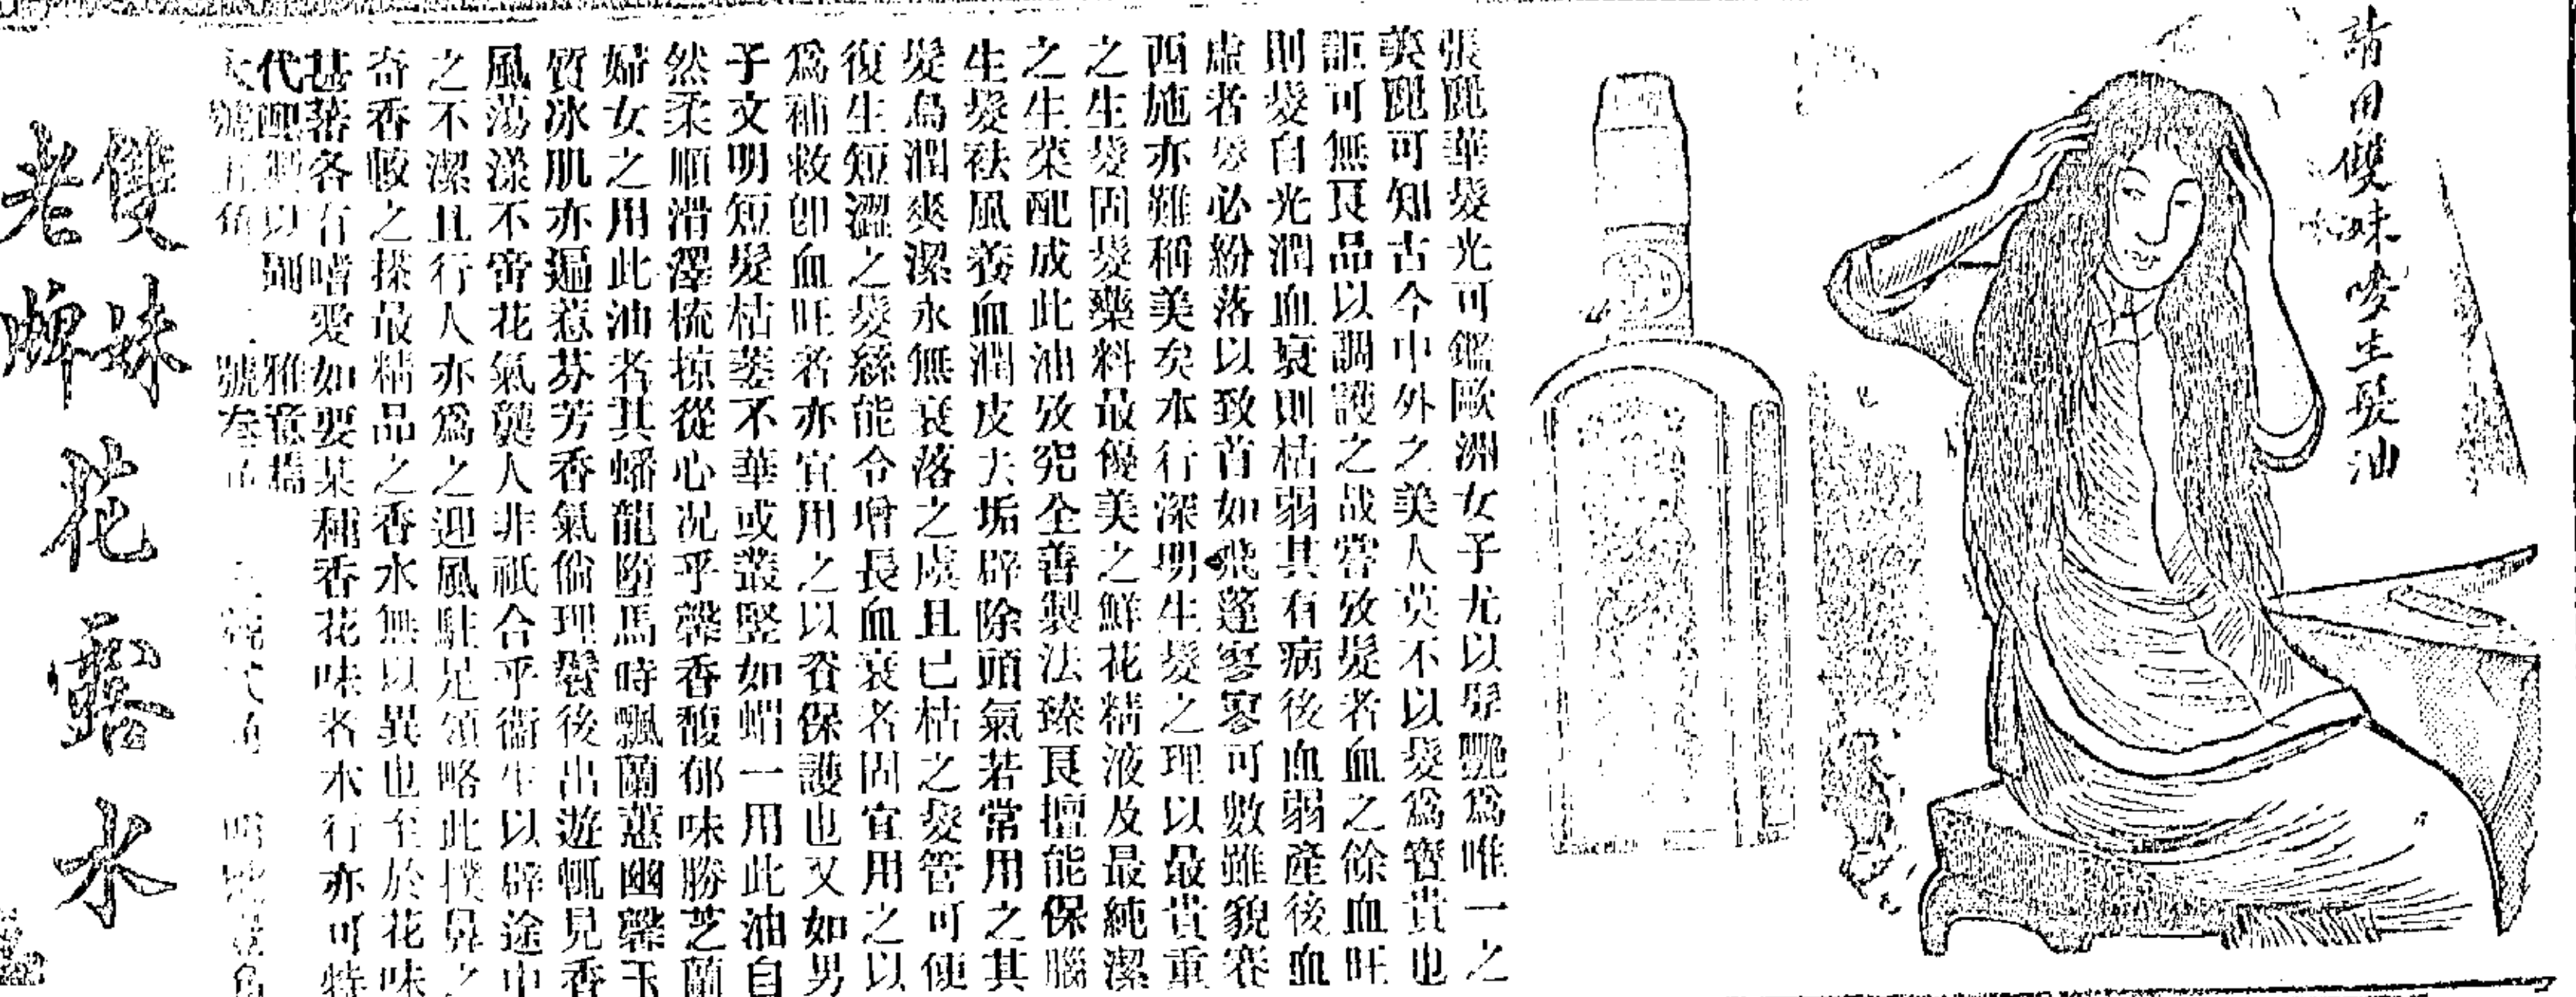 請用雙妹嘜生髮油
張麗華髮光可鑑歐洲女子尤以髮艷爲唯一之
美麗可知古今中外之美人莫不以髮爲寶貴也
詎可無良品以調護之哉嘗攷髮者血之餘血旺
則髮自光潤血衰則枯弱其有病後血弱產後血
虛者髮必紛落以致首如飛蓬寥寥可數雖貌賽
西施亦難稱美矣本行深明生髮之理以最貴重
之生髮固髮藥料最優美之鮮花精液及最純潔
之生菜配成此油攷究全善製法臻良擅能保腦
生髮祛風養血潤皮去垢辟除頭氣若常用之其
髮烏潤爽潔永無衰落之虞且已枯之髮管可使
復生短澀之髮絲能令增長血衰者固宜用之以
爲補救卽血旺者亦宜用之以資保護也又如男
子文明短髮枯萎不華或叢豎如蝟一用此油自
然柔順滑澤梳掠從心况乎馨香馥郁味勝芝蘭
婦女之用此油者其蟠龍墮馬時飄蘭蕙幽馨玉
質冰肌亦遍惹芬芳香氣倘理鬢後出遊輒見香
風蕩漾不啻花氣襲人非祇合乎衞生以辟途中
之不潔且行人亦爲之迎風駐足領略此撲鼻之
奇香較之搽最精品之香水無以異也至於花味
甚蕃各有嗜愛如要某種香花味者本行亦可特
代配製以副雅意
大號五角 二號叁
雙妹
老牌
花露水